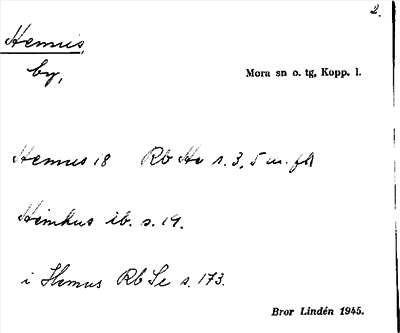 2.
Hemus,
by,
Mora sn o. tg, Kopp. l.
Hemus 18 Rb Hv s. 3, 5 m. fl
Hemkus ib. s. 19.
i Hemus Rb Se s. 173.
Bror Lindén 1945.